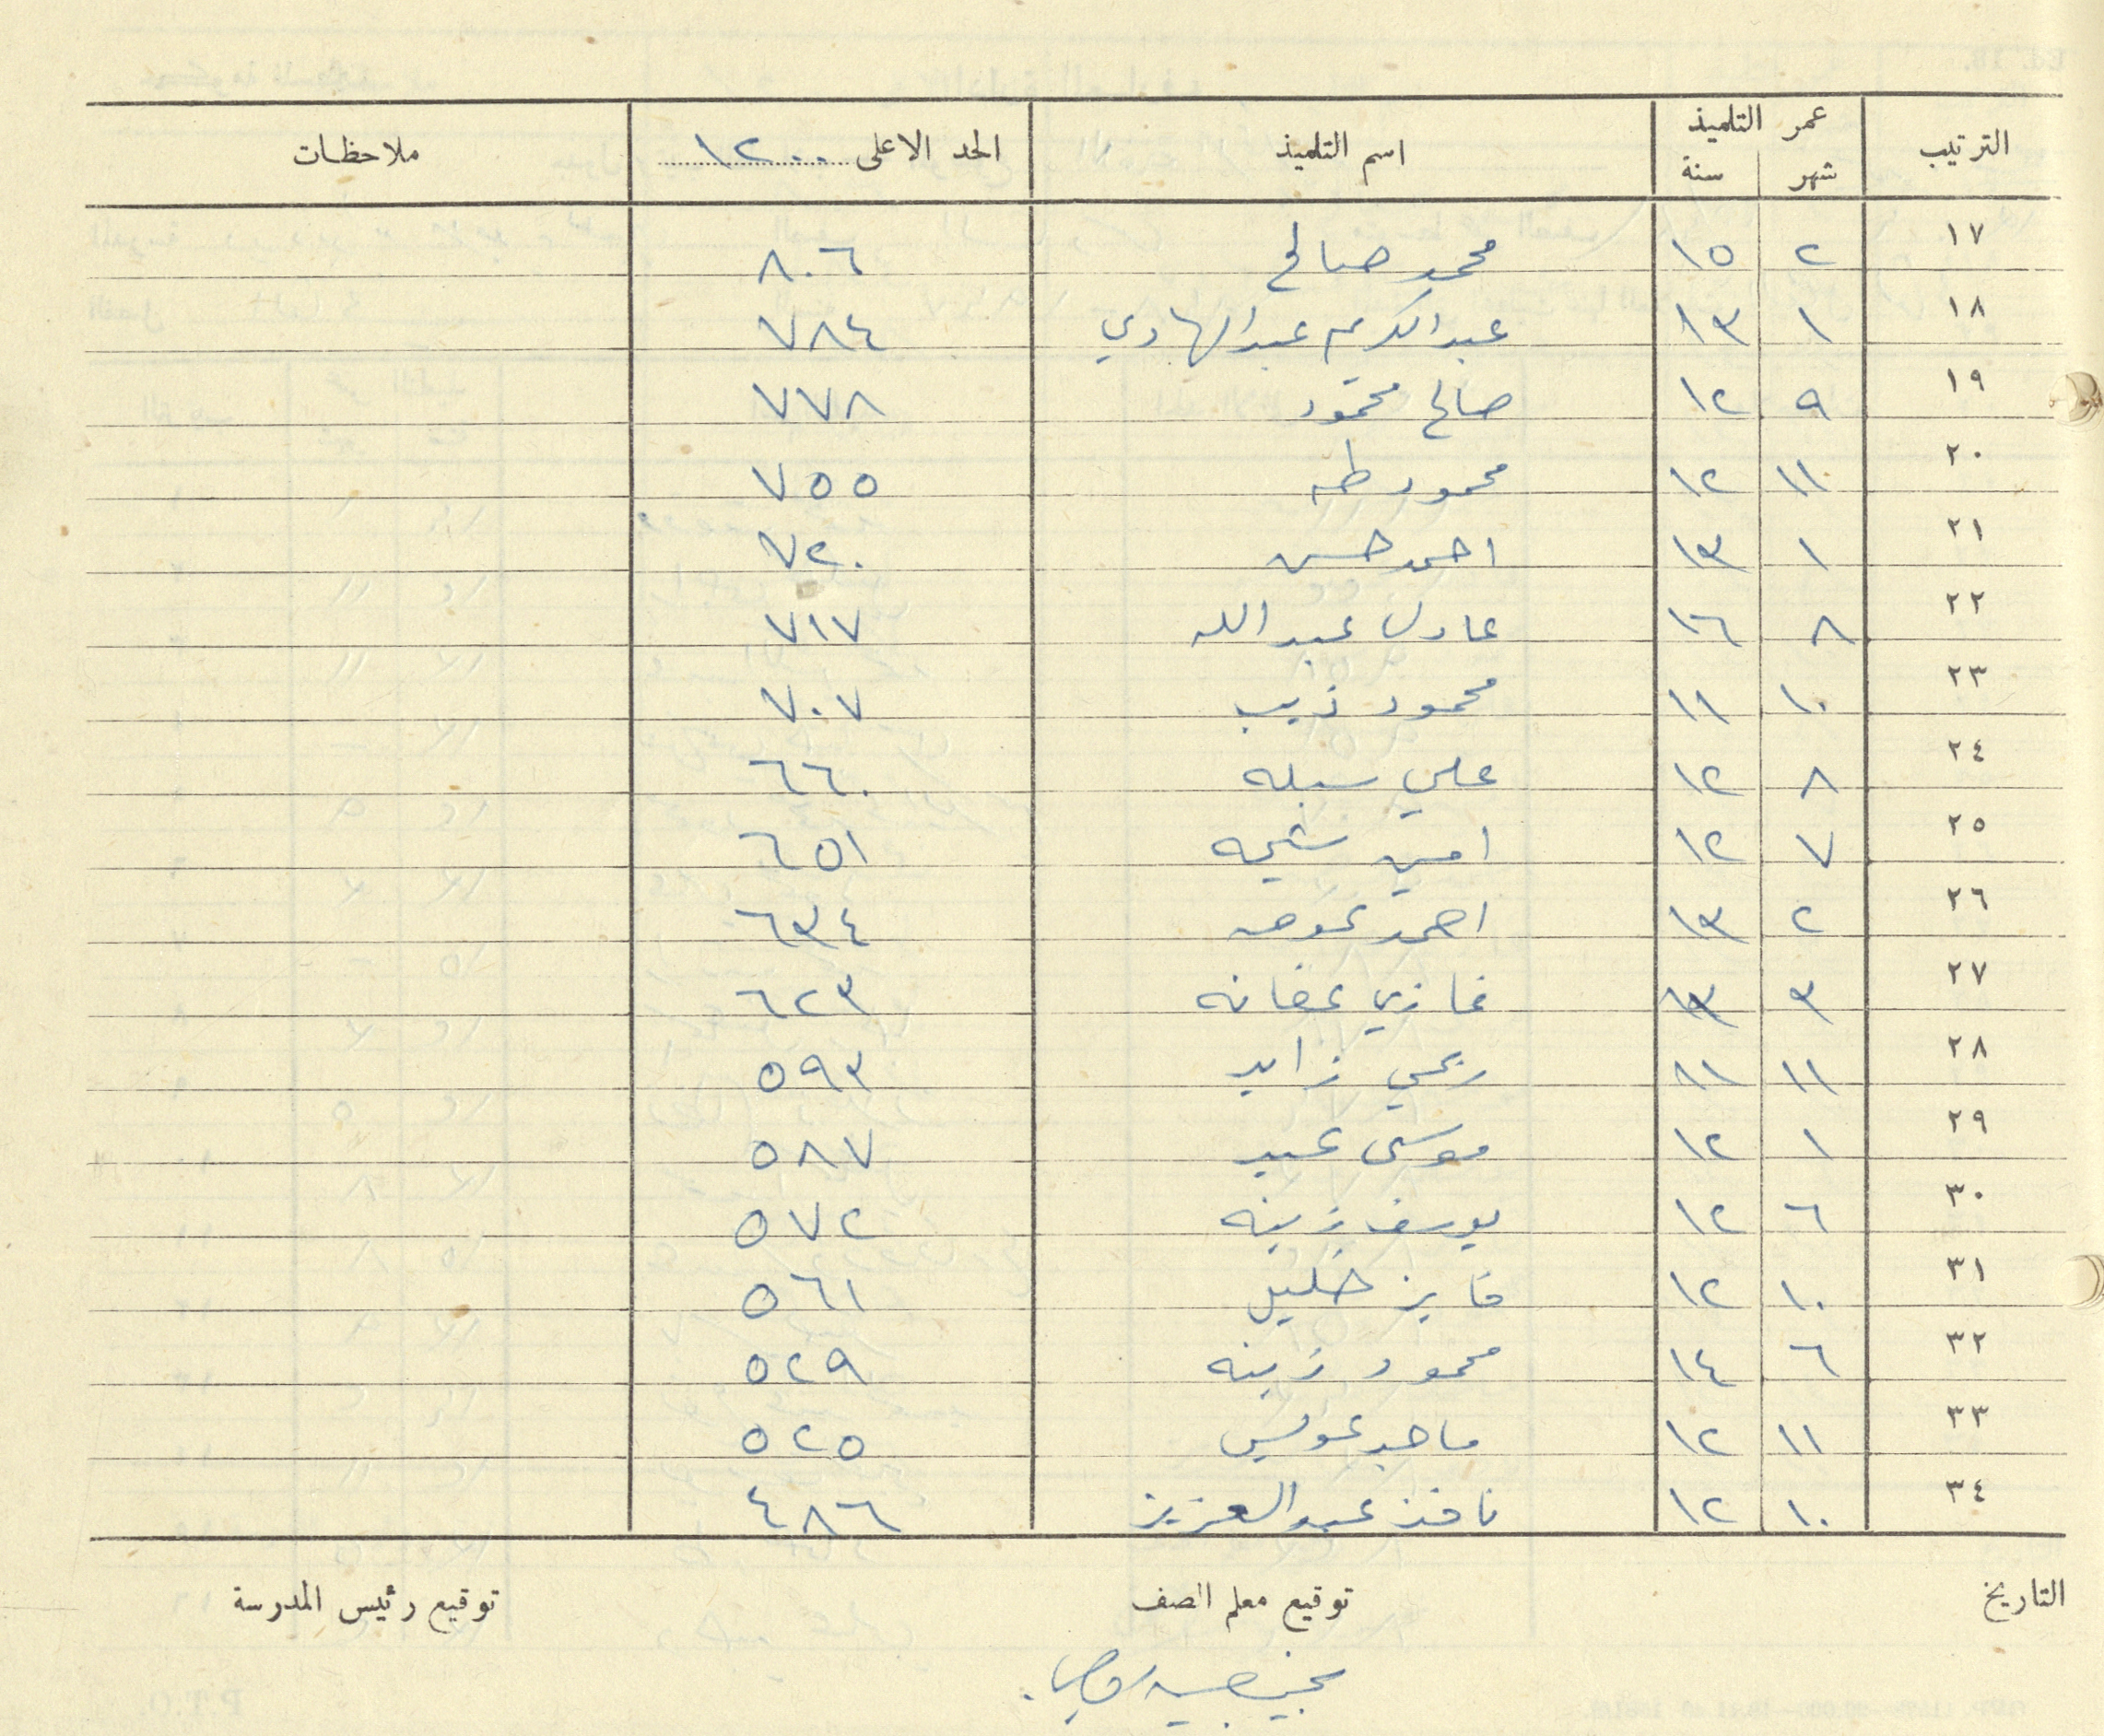 الترتيب عمر التلميذ اسم التلميذ الحد الاعلى ١٢٠٠ ملاحظات
شهر سنة
١٧ ٢ ١٥ محمد صالح ٨٠٦
١٨ ١ ١٣ عبد الكريم عبد الهادي ٧٨٤
١٩ ٩ ١٢ صالح محمود ٧٧٨
٢٠ ١١ ١٢ محمود طه ٧٥٥
٢١ ١ ١٣ احمد حسن ٧٢٠
٢٢ ٨ ١٦ عادل عبد الله ٧١٧
٢٣ ١٠ ١١ محمود ذيب ٧٠٧
٢٤ ٨ ١٢ علي سبله ٦٦٠
٢٥ ٧ ١٢ امين شيحه ٦٥١
٢٦ ٢ ١٣ احمد عوض ٦٣٤
٢٧ ٣ ١٣ غازي عفانه ٦٢٣
٢٨ ١١ ١١ ربحي زايد ٥٩٣
٢٩ ١ ١٢ موسى عبيد ٥٨٧
٣٠ ٦ ١٢ يوسف زينه ٥٧٢
٣١ ١٠ ١٢ فايز خليل ٥٦١
٣٢ ٦ ١٤ محمود زينه ٥٢٩
٣٣ ١١ ١٢ ماجد عويس ٥٢٥
٣٤ ١٠ ١٢ نافذ عبد العزيز ٤٨٦
التاريخ توقيع معلم الصف توقيع رئيس المدرسة